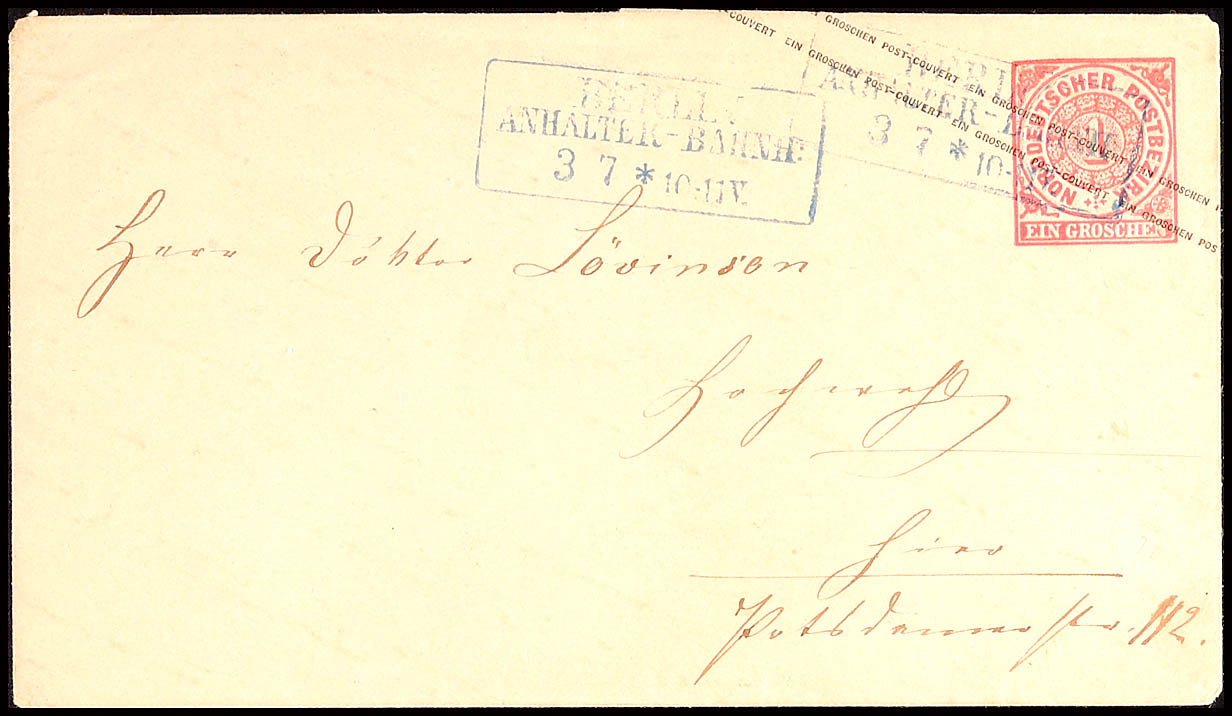 EIN GROSCHEN POST-COUVERT EIN GROSCHEN POST-COUVERT EIN GROSCHEN
COUVERT EIN GROSCHEN POST-COUVERT EIN GROSCHEN POST-COUVERT EIN GROSCHEN POS
BERLIN
ANHALTER-BAHNH:
3 7 * 10-11V.
BERL
ANHALTER-B
3 7 * 10-
NORDDEUTSCHER POSTBEZIRK
1
EIN GROSCHEN
Herr Doktor Lövinson
Hochwohl
hier
Potsdamerstr. 112.